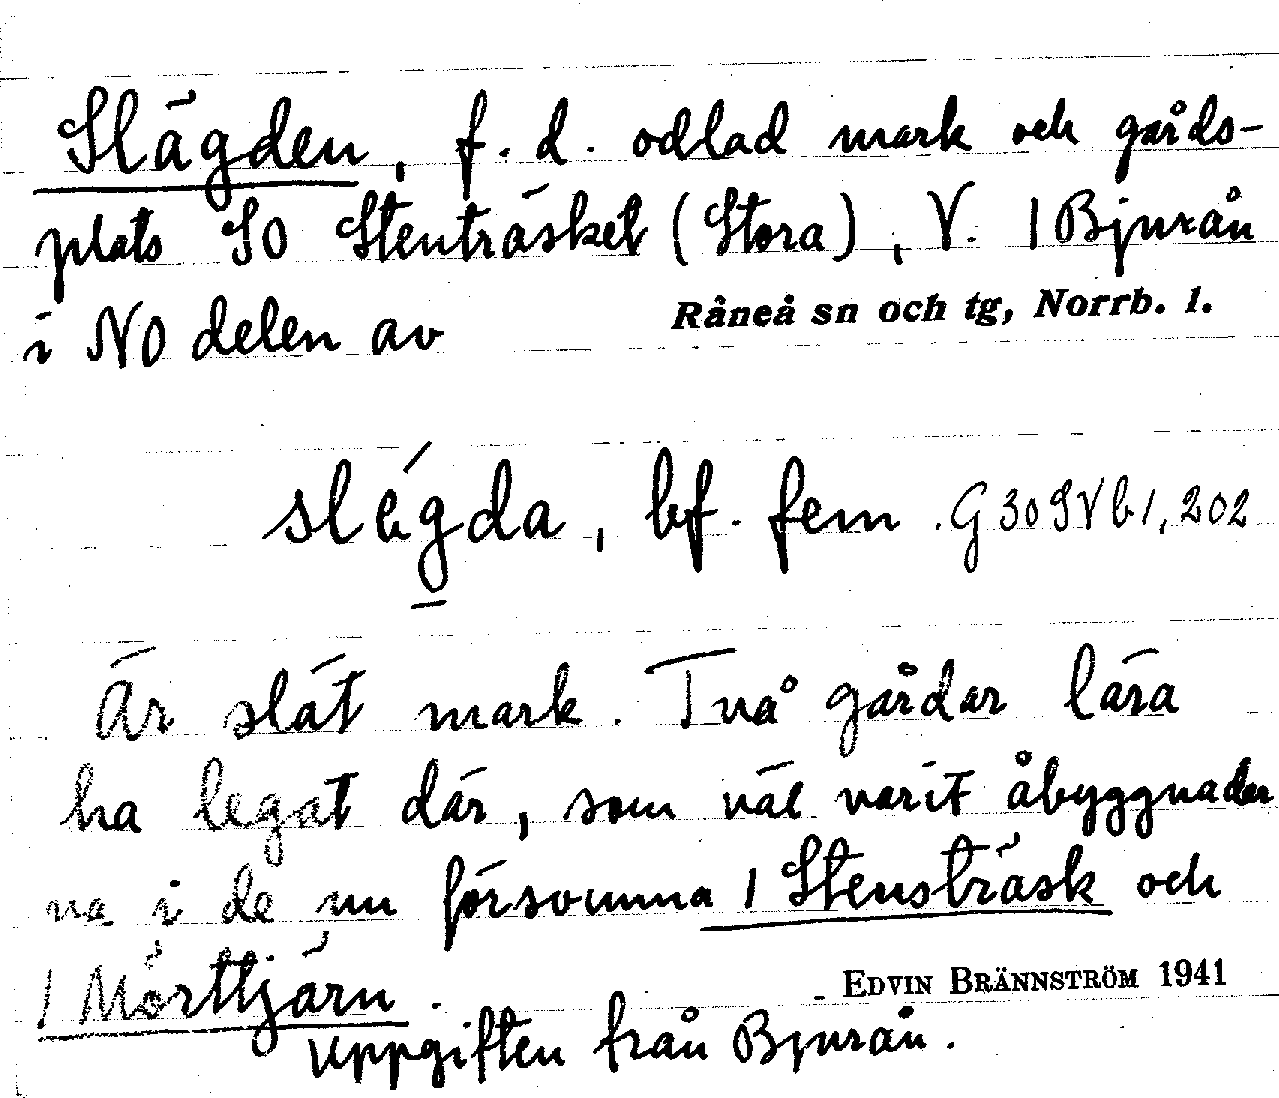 Slägden, f. d. odlad mark och gårds-
plats SO Stenträsket (Stora), V. 1 Bjurån
i NO delen av Råneå sn och tg, Norrb. l.
slégda, bf. fem. G 30 SVb1, 202
Är slät mark. Två gårdar lära
ha legat där, som väl varit åbyggnader
na i de nu försvunna 1 Stensträsk och
1 Mörttjärn.
EDVIN BRÄNNSTRÖM 1941
Uppgiften från Bjurån.